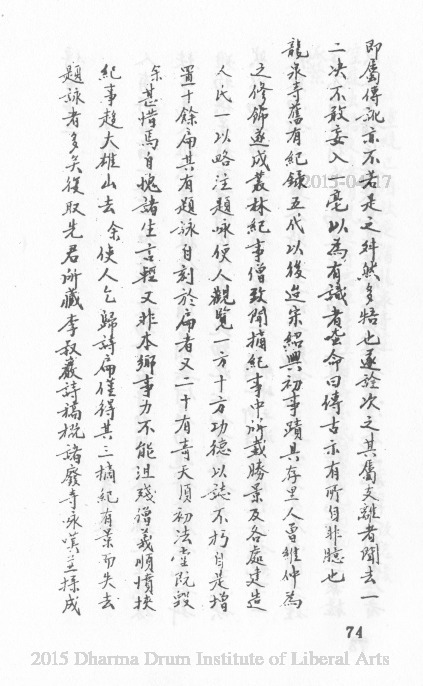 即屬傳訛亦不若是之糾然多牾也遂詮次之其屬支離者聞去一
二决不敢妄入一毫以為有識者命曰傳古示有所自非臆也
龍泉寺舊有紀錄五代以後迨宋紹興初事蹟其存里人曾維仲為
之修飾遂成叢林紀事僧致聞摘紀事中所載勝景及各處建造
人氏一以略注題咏便人觀覽一方十方功德以誌不朽自是增
置十餘扁其有題詠自刻於扁者又二十有奇天順初法堂阮毀
余甚惜焉自愧諸生言輕又非本鄉事力不能沮殘僧義順憤挾
紀事趍大雄山去余使人乞歸詩扁僅得其三摘紀有景而失去
題詠者多矣後取先君所藏李叔嚴詩稿概諸廢寺咏嘆並採成
74
2015-04-17
2015 Dharma Drum Institute of Liberal Arts